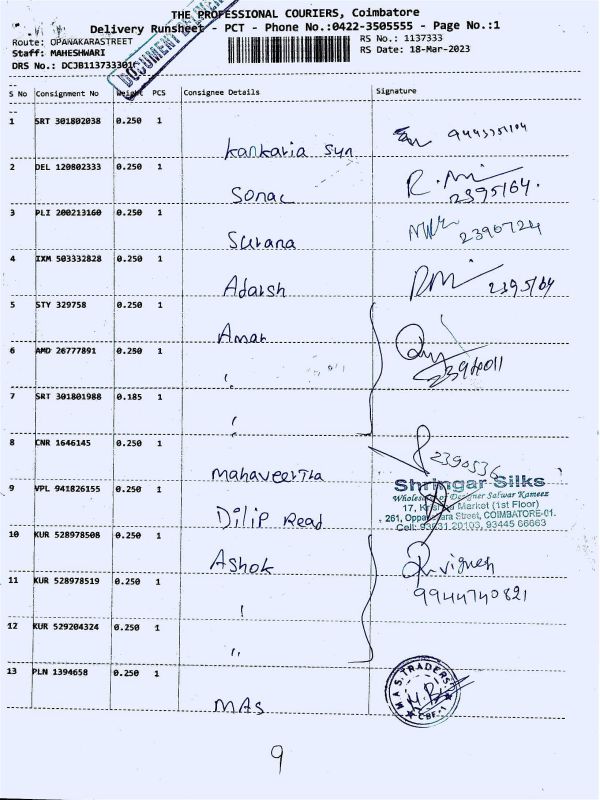 THE PROFESSIONAL COURIERS, Coimbatore
Delivery Runsheet - PCT - Phone No.:0422-3505555 - Page No.:1
Route: OPANAKARASTREET
RS No.: 1137333
Staff: MAHESHWARI
RS Date: 18-Mar-2023
DRS No.:
DOCUMENT
S No Consignment No Weight PCS Consignee Details Signature
1 SRT 301802038 0.250 1 Kankaria Syn
2 DEL 120802333 0.250 1 Sonal R. 2395164.
3 PLI 200213160 0.250 1 Surana 2390724
4 IXM 503332828 0.250 1 Adarsh 2395164
5 STY 329758 0.250 1 Aman
6 AMD 26777891 0.250 1 "
7 SRT 301801988 0.185 1 "
8 CNR 1646145 0.250 1 Mahaveertha 2390536
9 VPL 941826155 0.250 1 Dilip Read
Shringar Silks
Wholesaler of Designer Salwar Kameez
17, Market (1st Floor)
261, Street, COIMBATORE-01.
Cell: 20103, 93445 66663
10 KUR 528978508 0.250 1 Ashok Vignesh
11 KUR 528978519 0.250 1 " 9944740821
12 KUR 529204324 0.250 1 "
13 PLN 1394658 0.250 1 MAS
M.A.S. TRADERS
CBE-1
9